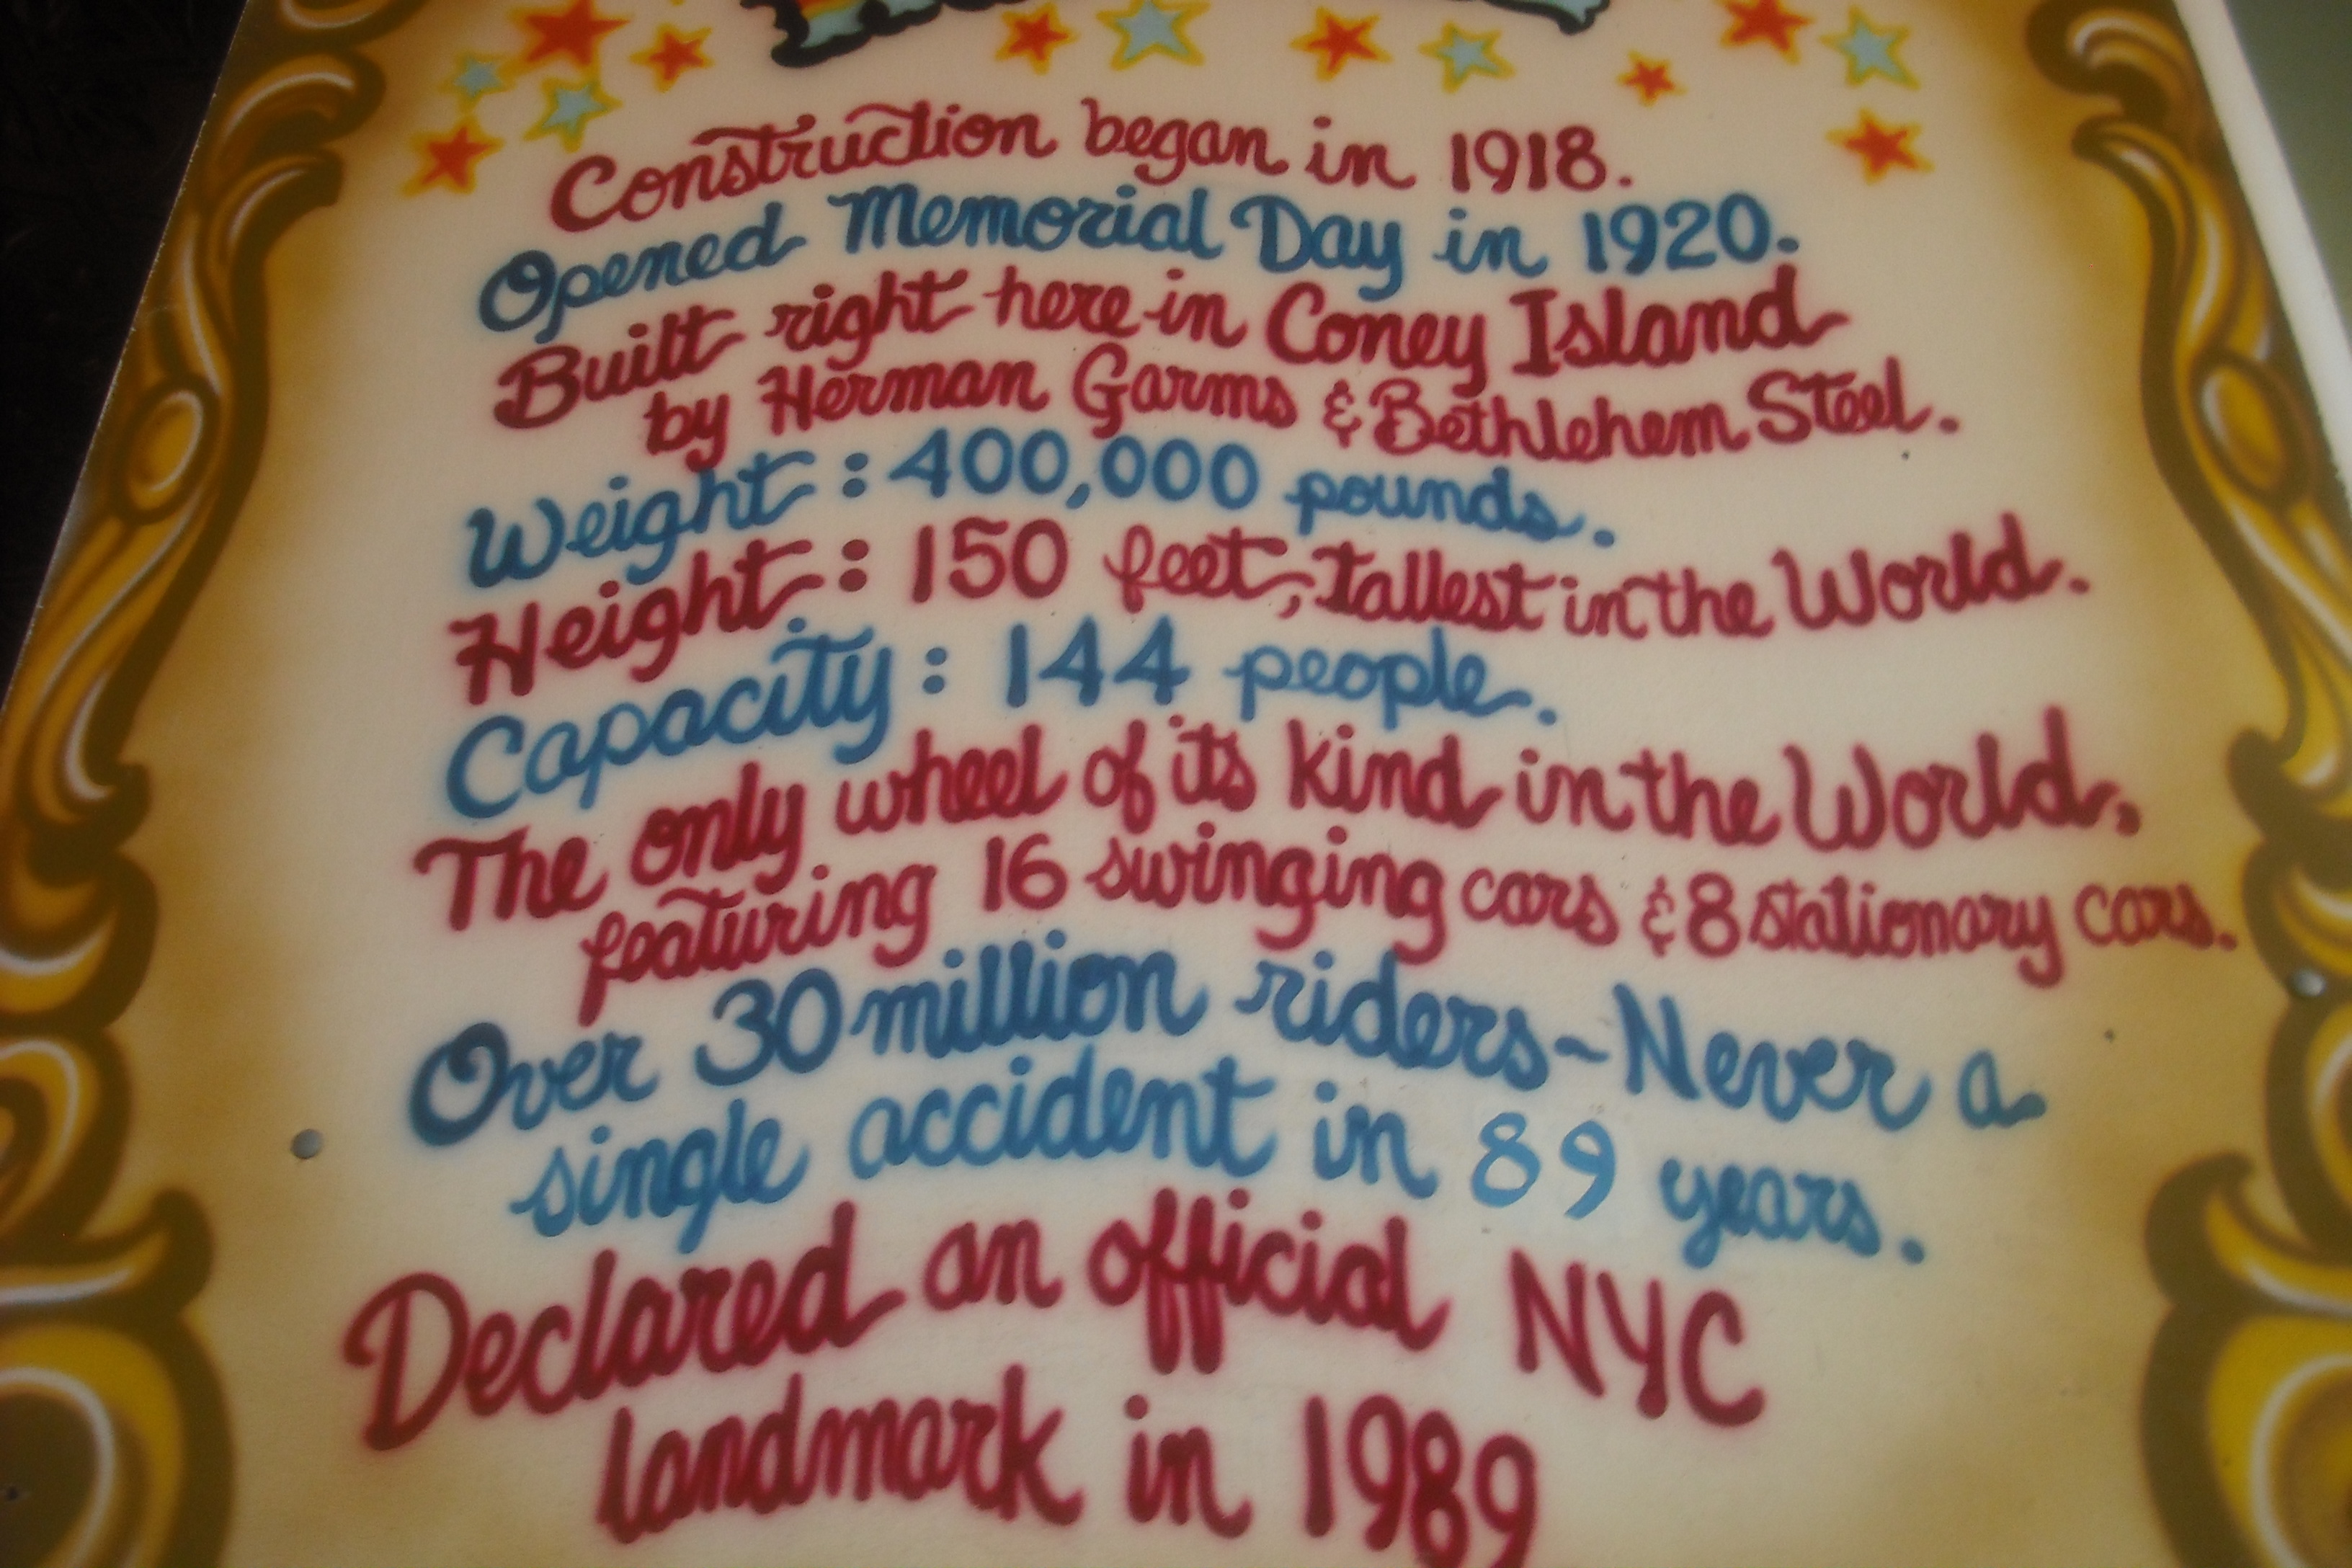 Construction began in 1918.
Opened Memorial Day in 1920.
Built right here in Coney Island
by Herman Garms & Bethlehem Steel.
Weight: 400,000 pounds.
Height: 150 feet, Tallest in the World.
Capacity: 144 people.
The only wheel of its kind in the World,
featuring 16 swinging cars & 8 stationary cars.
Over 30 million riders~Never a
single accident in 89 years.
Declared an official NYC
landmark in 1989